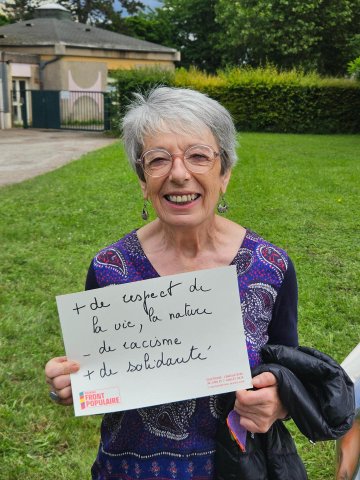 + de respect de
la vie, la nature
- de racisme
+ de solidarité
FRONT
POPULAIRE